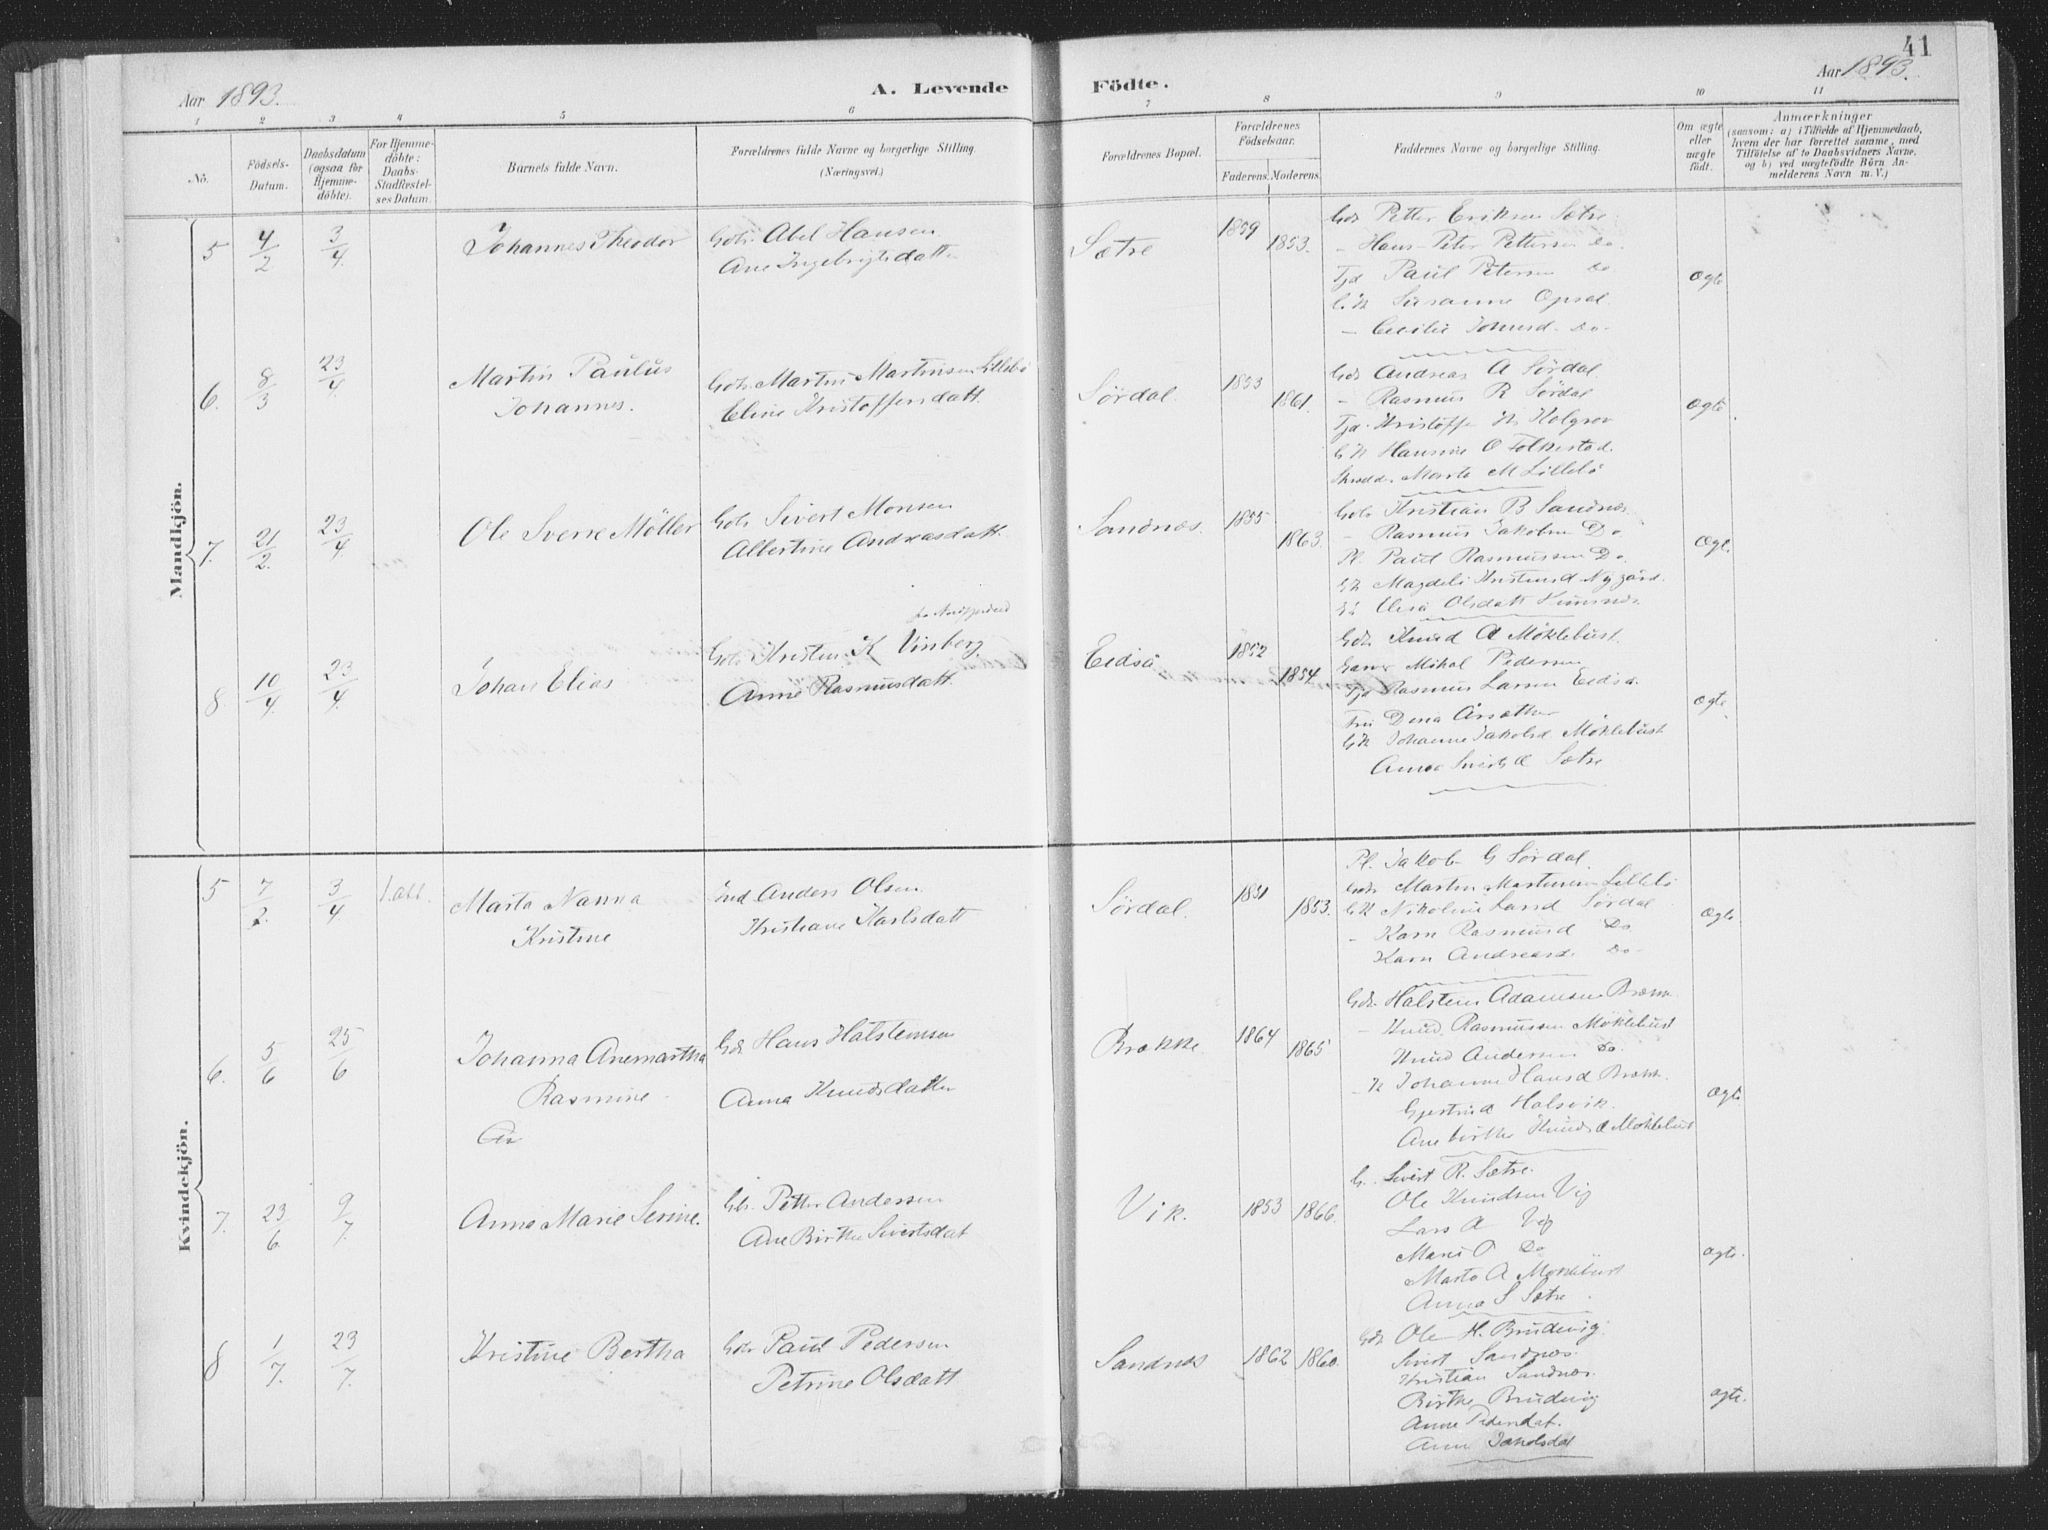 41
Aar 1893.
A. Levende
Födte.
Aar 1893.
1 2 3 4 5 6 7 8 9 10 11
Nö.
Födsels-
Datum.
Daabsdatum
(ogsaa for
Hjemme-
döbte).
For Hjemme-
döbte:
Daabs-
Stadfæstel-
ses Datum.
Barnets fulde Navn.
Forældrenes fulde Navne og borgerlige Stilling.
(Næringsvei.)
Forældrenes Bopæl.
Forældrenes
Födselsaar.
Faderens. Moderens.
Faddernes Navne og borgerlige Stilling.
Om ægte
eller
uægte
födt.
Anmærkninger
(saasom: a) i Tilfælde af Hjemmedaab,
hvem der har forrettet samme, med
Tilföielse af to Daabsvidners Navne,
og b) ved uægtefödte Börn An-
melderens Navn m. V.)
Mandkjön.
5
4/2
3/4
Johannes Theodor
Gbr. Abel Hansen
Ane Ingebrigtsdatter
Sætre
1859
1853.
Gbr Petter Eriksen Sætre
- Hans Peter Pettersen Do.
Tjd Paul Petersen Do
G.K Susanne Opsal
- Cecilie Johnsd. Do-
Ægte
6.
8/3
23/4
Martin Paulus
Johannes.
Gbr. Martin Martinsen Lillebö
Eline Kristoffersdatt
Sördal
1853
1861.
Gbr Andreas A Sördal
- Rasmus R Sördal
Tjd. Kristoffer Holgrov
G K Hansine O Folkestad
Marte M Lillebö
Ægte
7.
21/2.
23/4
Ole Sverre Möller
Gbr Sivert Monsen
Albertine Andreasdatt.
Sandnæs.
1855
1863.
Gbr Kristian B Sandnæs
- Rasmus Jakobsen Do
Pl. Paul Rasmussen Do
Magdeli Nygård.
Olsdatt
Ægt.
8.
10/4
23/4
Johan Elias
fr Nordfjordeid
Gbr Kristen K Vinberg
Anne Rasmusdatt
Eidså
1852
1854
Gbr Knud A Möklebust
Mikal Pedersen
Tjd Rasmus Larsen Eidså
Dina Årsæther
GK Johanne Jakobsd Möklebust
Anna Sivertsd Sætre
Ægte
Kvindekjön.
5
7/2
3/4
Marta Nanna
Kristine
Ind Anders Olsen
Kristiane Karlsdatt
Sördal
1851
1853.
Pl. Jakob G Sördal
Gbr Martin Martinsen Lillebö
GK Nikoline Larsd Sördal
- Karn Rasmusd Do
Karn Andreasd. Do-
Ægte
6.
5/6
25/6
Johanna Anemartha
Rasmine
An
Gbr Hans Halstensen
Anna Knudsdatter
Brække
1864
1865
Gbr Halsten Adamsen Brække
- Knud Rasmussen Möklebust
Knud Andersen Do.
- K Johanne Hansd Brække
Gjertrud Halsvik
Ane Birthe Knudsd Möklebust
Ægte
7.
23/6
9/7
Anne Marie Serine.
Gbr. Petter Andersen
Ane Birthe Sivertsdat
Vik.
1853
1866.
G. Sivert R. Sætre
Ole Knudsen Vig
Lars A Vig
Marie O Do
Marta A Möklebust
Anna S Sætre
ægte.
8
1/7.
23/7.
Kristine Bertha
Gbr Paul Pedersen
Petrine Olsdatt
Sandnæs
1862
1860.
Gbr Ole H. Brudevig
Sivert Sandnæs
Kristian Sandnæs.
Birthe Brudevig
Anne Pedersdat.
Anne Jakobsdat
ægte.